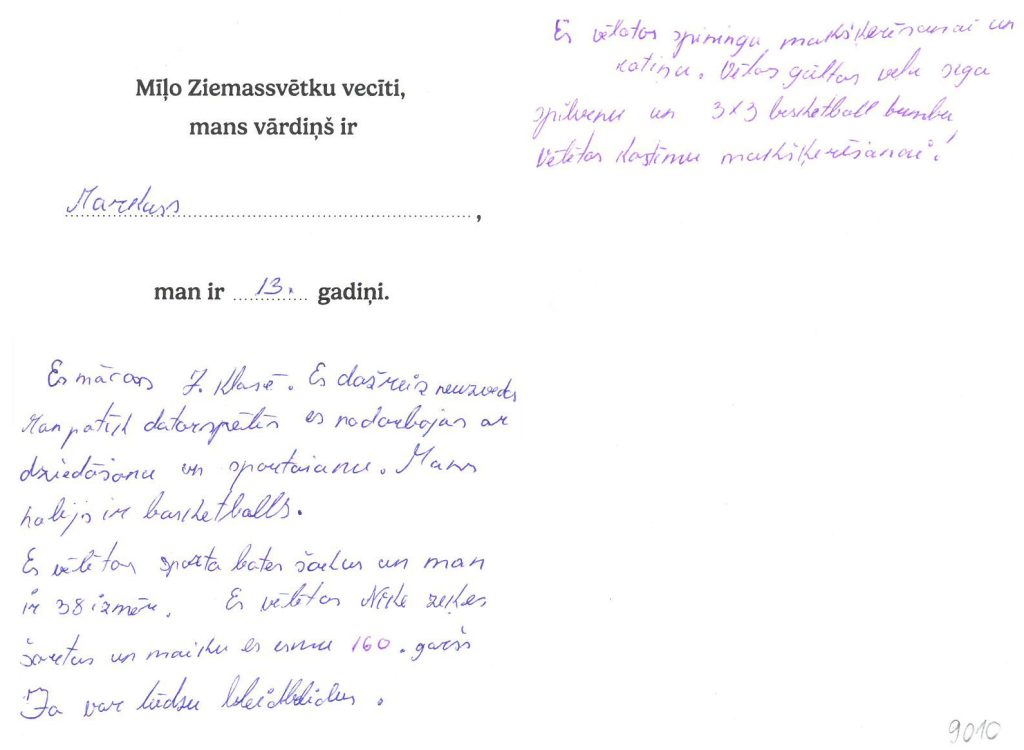 Mīļo Ziemassvētku vecīti,
mans vārdiņš ir
Markuss,
man ir 13. gadiņi.
Es mācos 7. klasē. Es dažreiz neuzvedos
Man patīk datorspēlēs es nodarbojas ar
dziedāšanu un sportošanu. Mans
hobijs ir basketballs.
Es vēlētos sporta botes šorkus un man
ir 38 izmērs. Es vēlētos Nike zeķes
šoretas un maiku es esmu 160. garš
Ja var lūdzu
Es vēlatos spininga makšķerēšanai un
kotiņu. Vēlos gultas veļu sega
spilvenu un 3x3 basketball bumbu,
Vēlētos kostimu makšķerēšanai!
9010